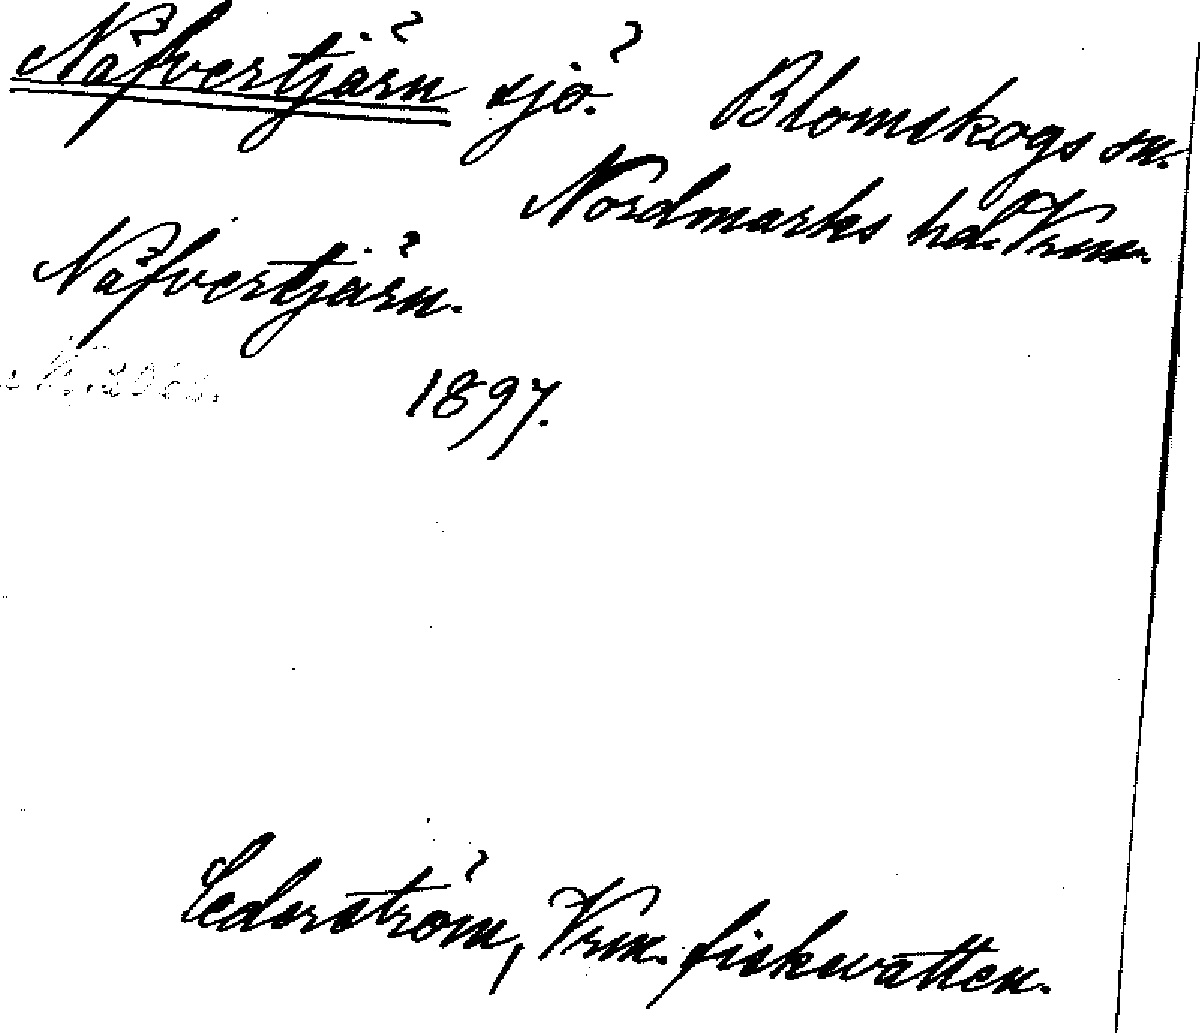 Näfvertjärn sjö. Blomskogs sn.
Nordmarks hd. Vrm.
Näfvertjärn.
1897.
Cederström, Vrm. fiskevatten.